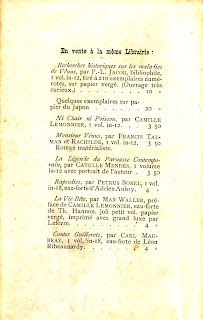 En vente à la même Librairie :
Recherches historiques sur les maladies
de Vénus, par P.-L. JACOB, bibliophile,
1 vol. in-12, tiré à 210 exemplaires numé-
rotés, sur papier vergé. (Ouvrage très
curieux.) . . . . . 10 »
Quelques exemplaires sur pa-
pier du Japon . . . . 20 »
Ni Chair ni Poisson, par CAMILLE
LEMONNIER, 1 vol. in-12. . . 3 50
Monsieur Vénus, par FRANCIS TAL-
MAN et RACHILDE, 1 vol. in-12. 3 50
Roman matérialiste.
La Légende du Parnasse Contempo-
rain, par CATULLE MENDÈS, 1 volume
in-12 avec portrait de l'auteur . 3 50
Rapsodies, par PETRUS BOREL, 1 vol.
in-18, eau-forte d'Adrien Aubry. 4 »
La Vie Bête, par MAX WALLER, pré-
face de CAMILLE LEMONNIER, eau-forte
de Th. Hannon, joli petit vol. papier
vergé, imprimé avec grand luxe par
Lefèvre. . . . . 4 »
Contes Guillerets, par CARL MAU-
BRAY, 1 vol. in-18, eau-forte de Léon
Ribeaumardy. . . . . 4 »